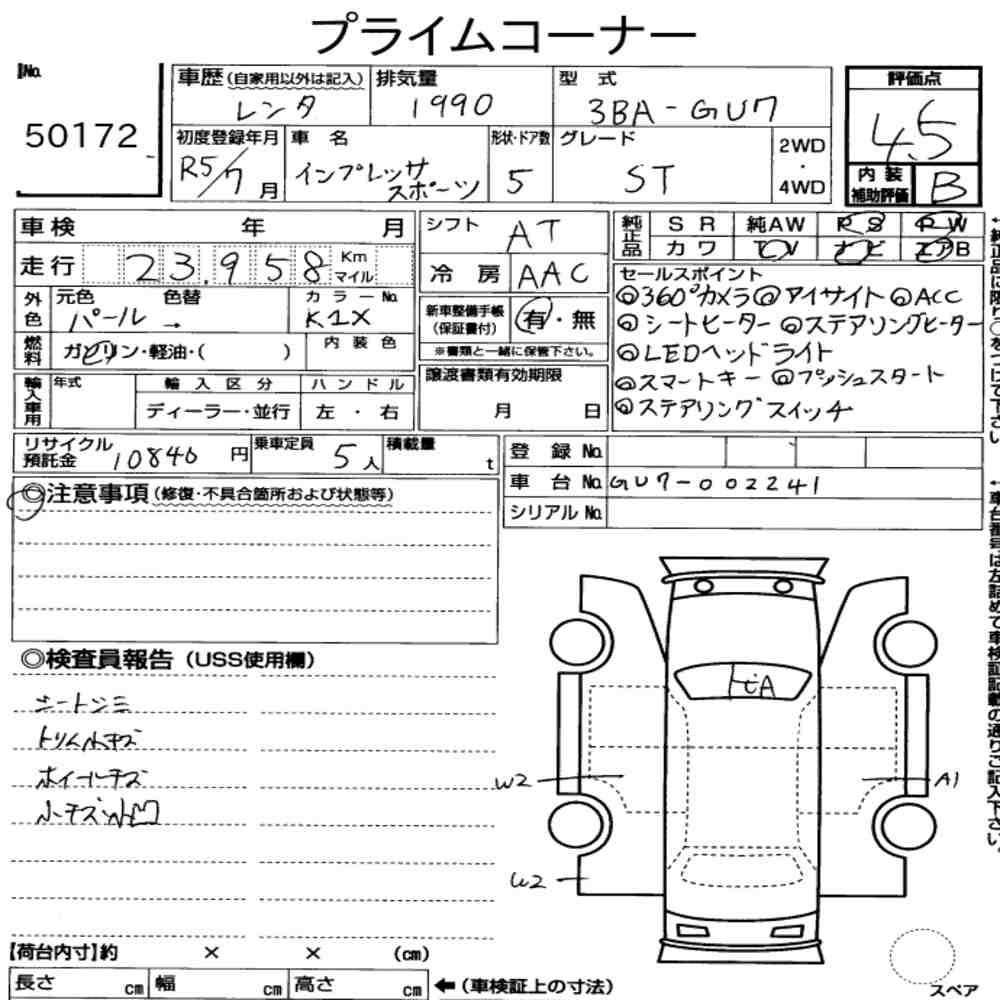 プライムコーナー
No.
50172
車歴 (自家用以外は記入)
レンタ
排気量
1990
型式
3BA-GU7
評価点
4.5
初度登録年月
R5/7月
車名
インプレッサ
スポーツ
形状・ドア数
5
グレード
ST
2WD
・
4WD
内装
補助評価
B
車検 年 月
走行 23.958 Km
マイル
シフト AT
冷房 AAC
純正品 SR 純AW PS PW
カワ TV ナビ エアB
外色 元色 色替 カラーNo.
パール → K1X
燃料 ガソリン・軽油・( ) 内装色
新車整備手帳
(保証書付) 有・無
※書類と一緒に保管下さい。
セールスポイント
◎360°カメラ ◎アイサイト ◎ACC
◎シートヒーター ◎ステアリングヒーター
◎LEDヘッドライト
◎スマートキー ◎プッシュスタート
◎ステアリングスイッチ
輸入車用 年式 輸入区分 ハンドル
ディーラー・並行 左・右
譲渡書類有効期限
月 日
リサイクル
預託金 10840 円
乗車定員 5人
積載量 t
登録No.
車台No. GU7-002241
シリアルNo.
◎注意事項 (修復・不具合箇所および状態等)
◎検査員報告 (USS使用欄)
シートシミ
トリム小キズ
ホイールキズ
小キズ小凹
ヒA
W2
A1
W2
【荷台内寸】約 × × (cm)
長さ cm 幅 cm 高さ cm
←(車検証上の寸法)
スペア
←純正品に限り○をつけて下さい
←車台番号は左詰めで車検証記載の通りご記入下さい。